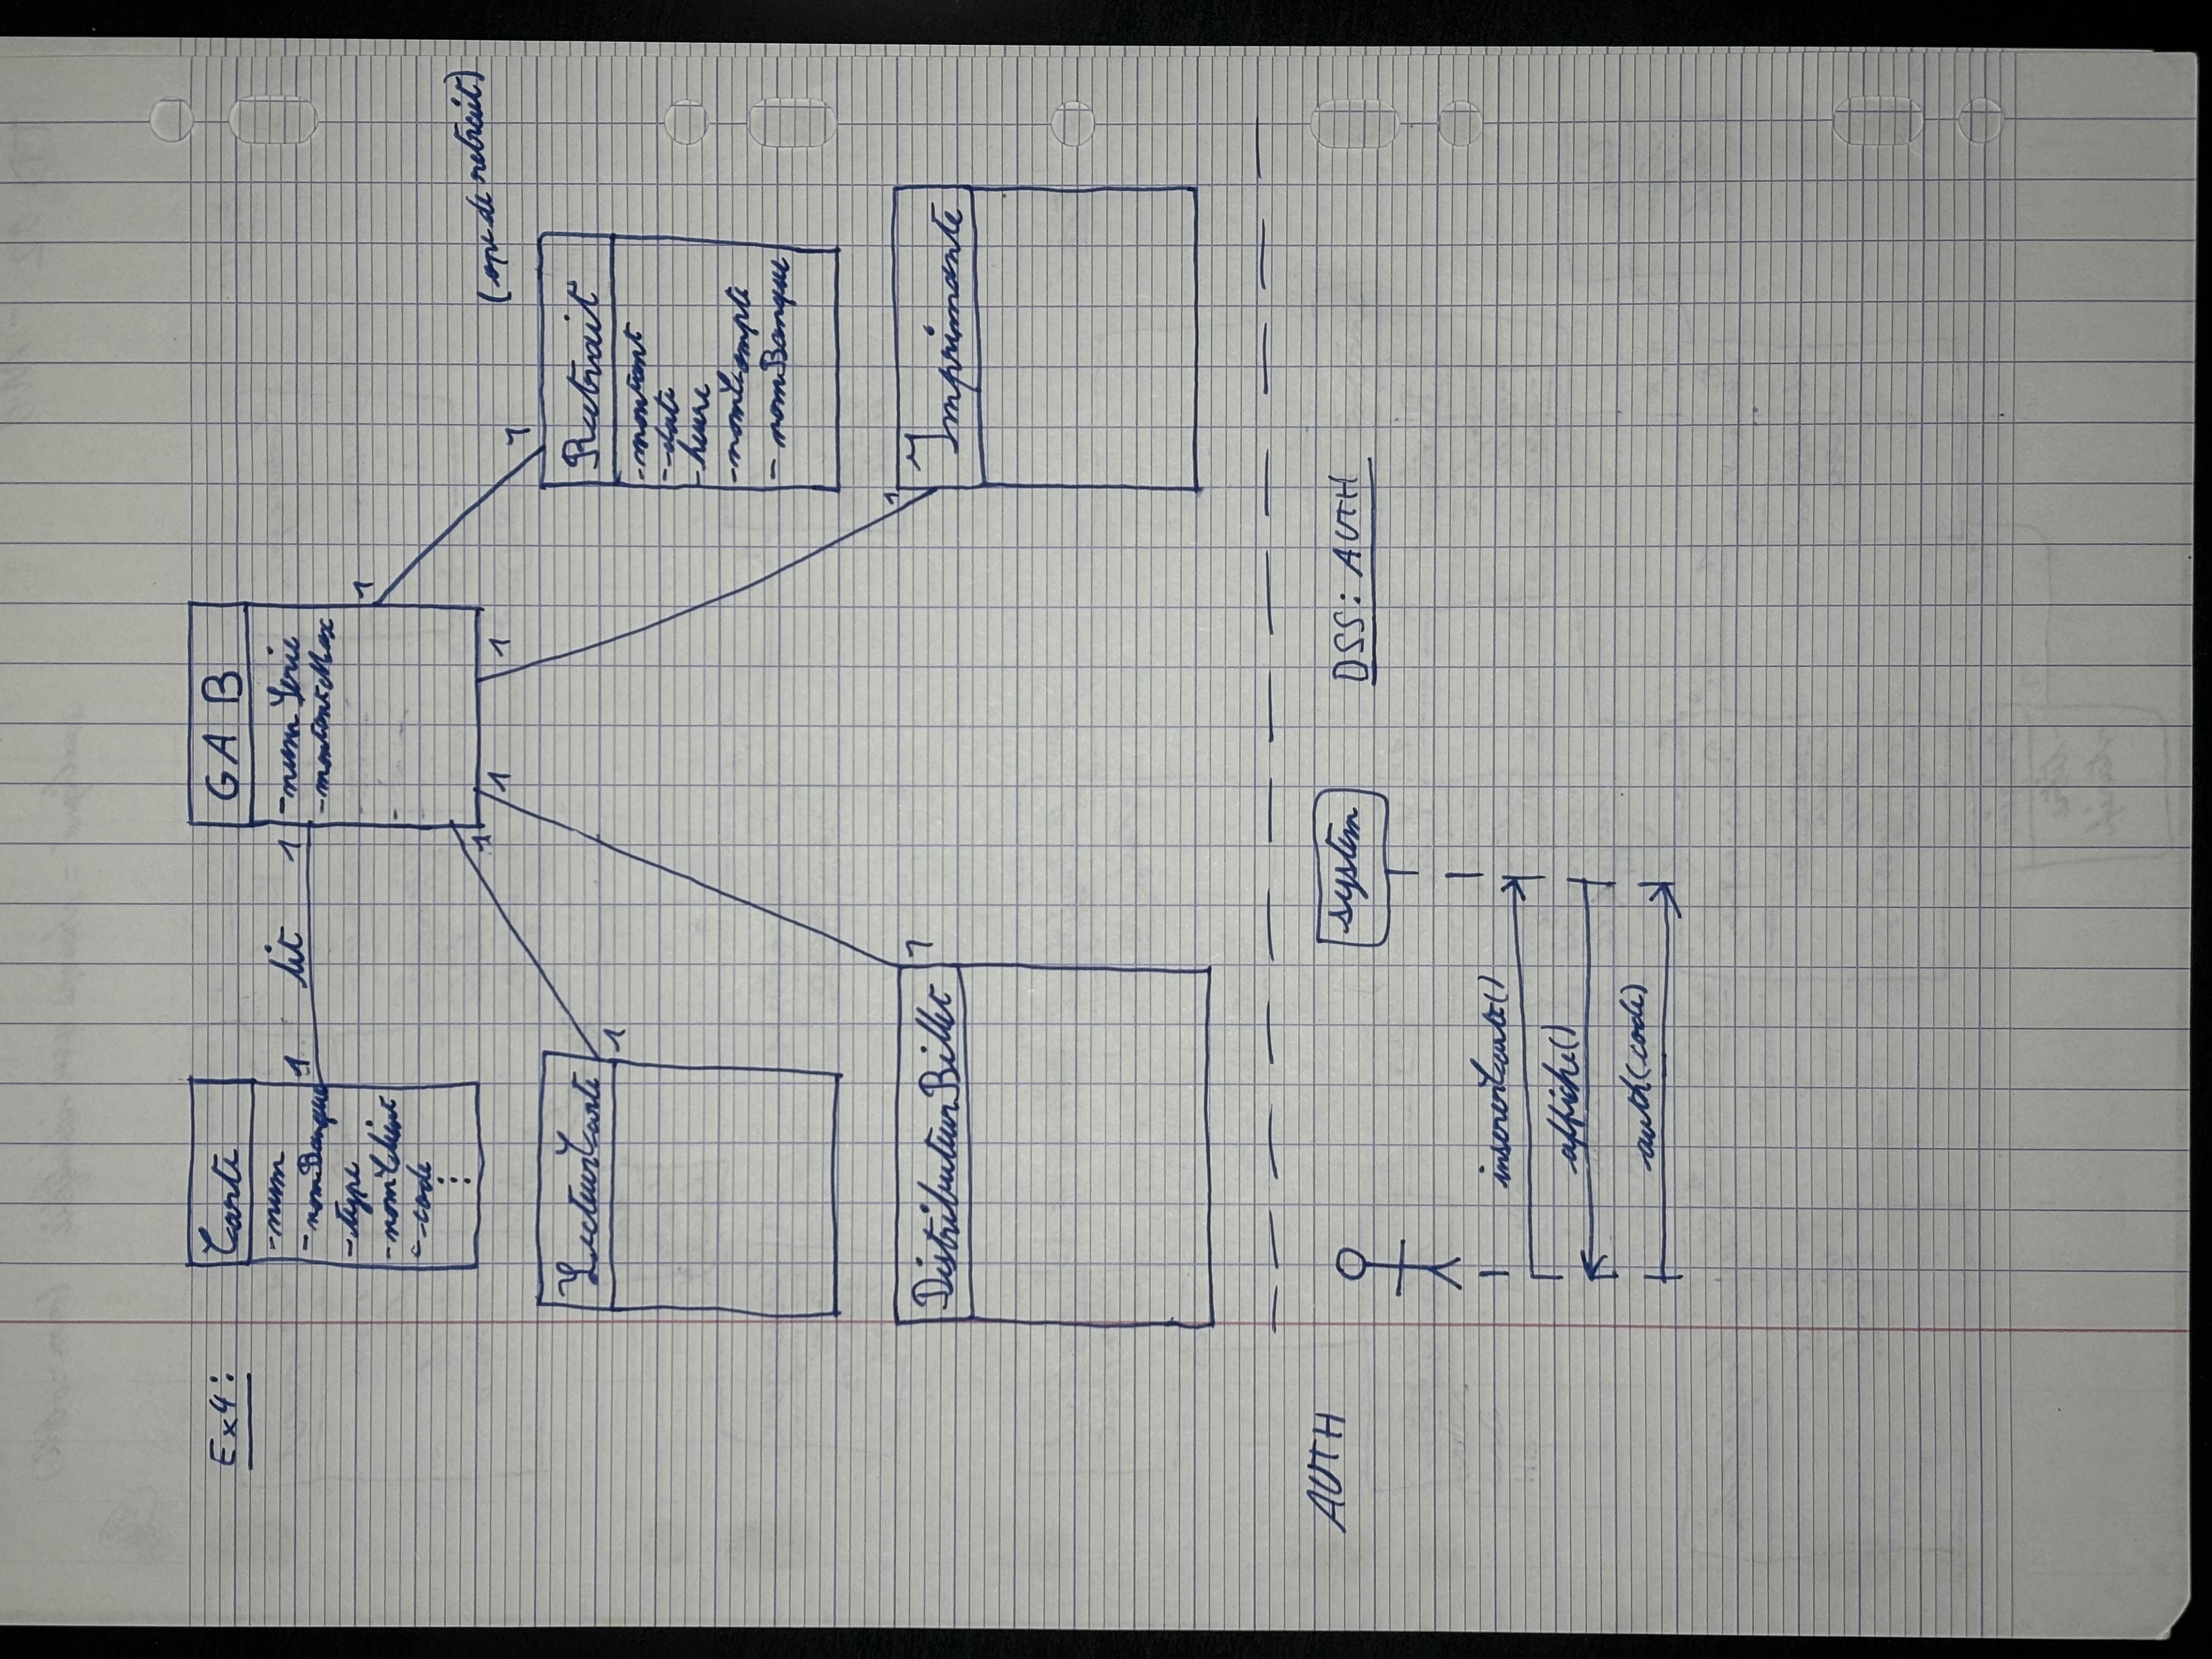 Ex4:
Carte
- num
- nomBanque
- type
- nomClient
- code
⋮
1 lit 1
GAB
- numSerie
- montantMax
-
1
1
1
1
(ope de retrait)
1
LecteurCarte
1
Retrait
- montant
- date
- heure
- nomCompte
- nomBanque
DistributeurBillet
1
1
Imprimante
AUTH
system
DSS: AUTH
insererCarte()
affiche()
auth(code)